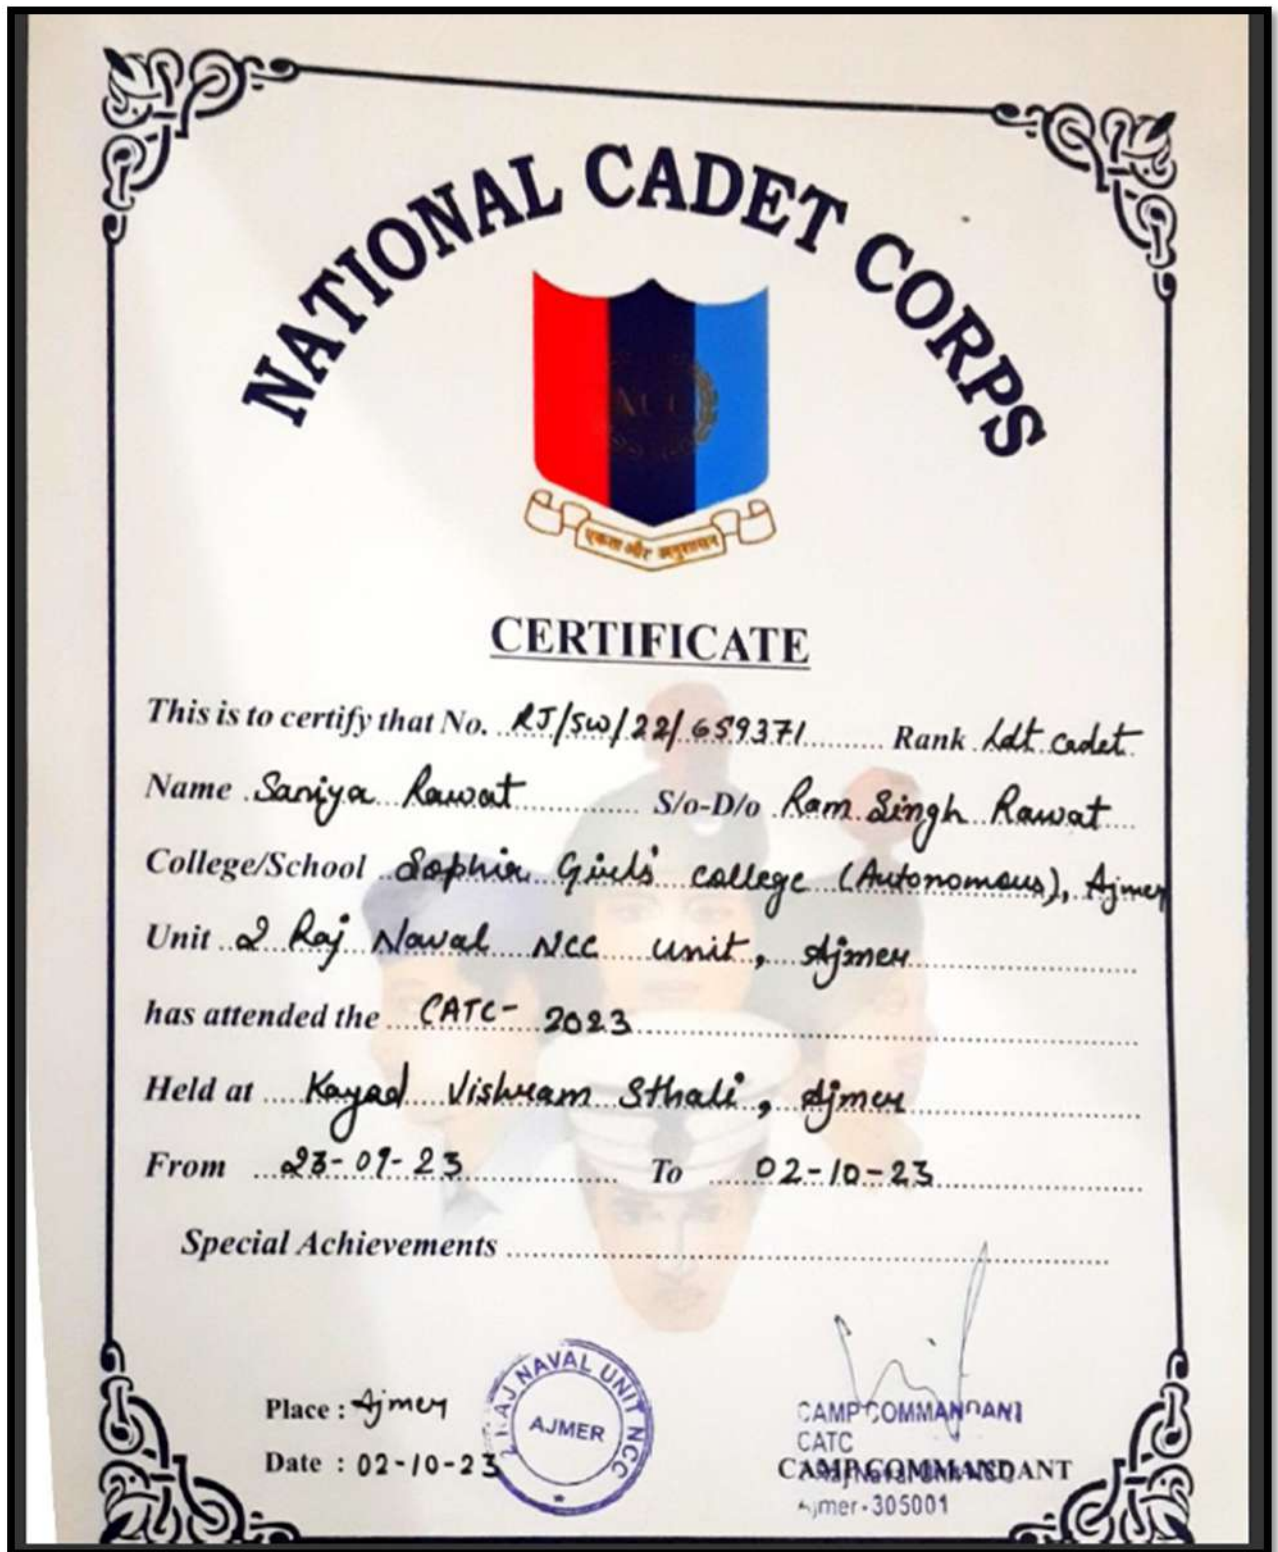 NATIONAL CADET CORPS
एकता और अनुशासन
CERTIFICATE
This is to certify that No. RJ/SW/22/659371 Rank Ldt cadet
Name Saniya Rawat S/o-D/o Ram Singh Rawat
College/School Sophia Girls' college (Autonomous), Ajmer
Unit 2 Raj Naval NCC unit, Ajmer
has attended the CATC- 2023
Held at Kayad Vishram Sthali, Ajmer
From 23-09-23 To 02-10-23
Special Achievements
Place : Ajmer
Date : 02-10-23
2 RAJ NAVAL UNIT NCC
AJMER
CAMP COMMANDANT
CATC
CAMP COMMANDANT
Ajmer-305001